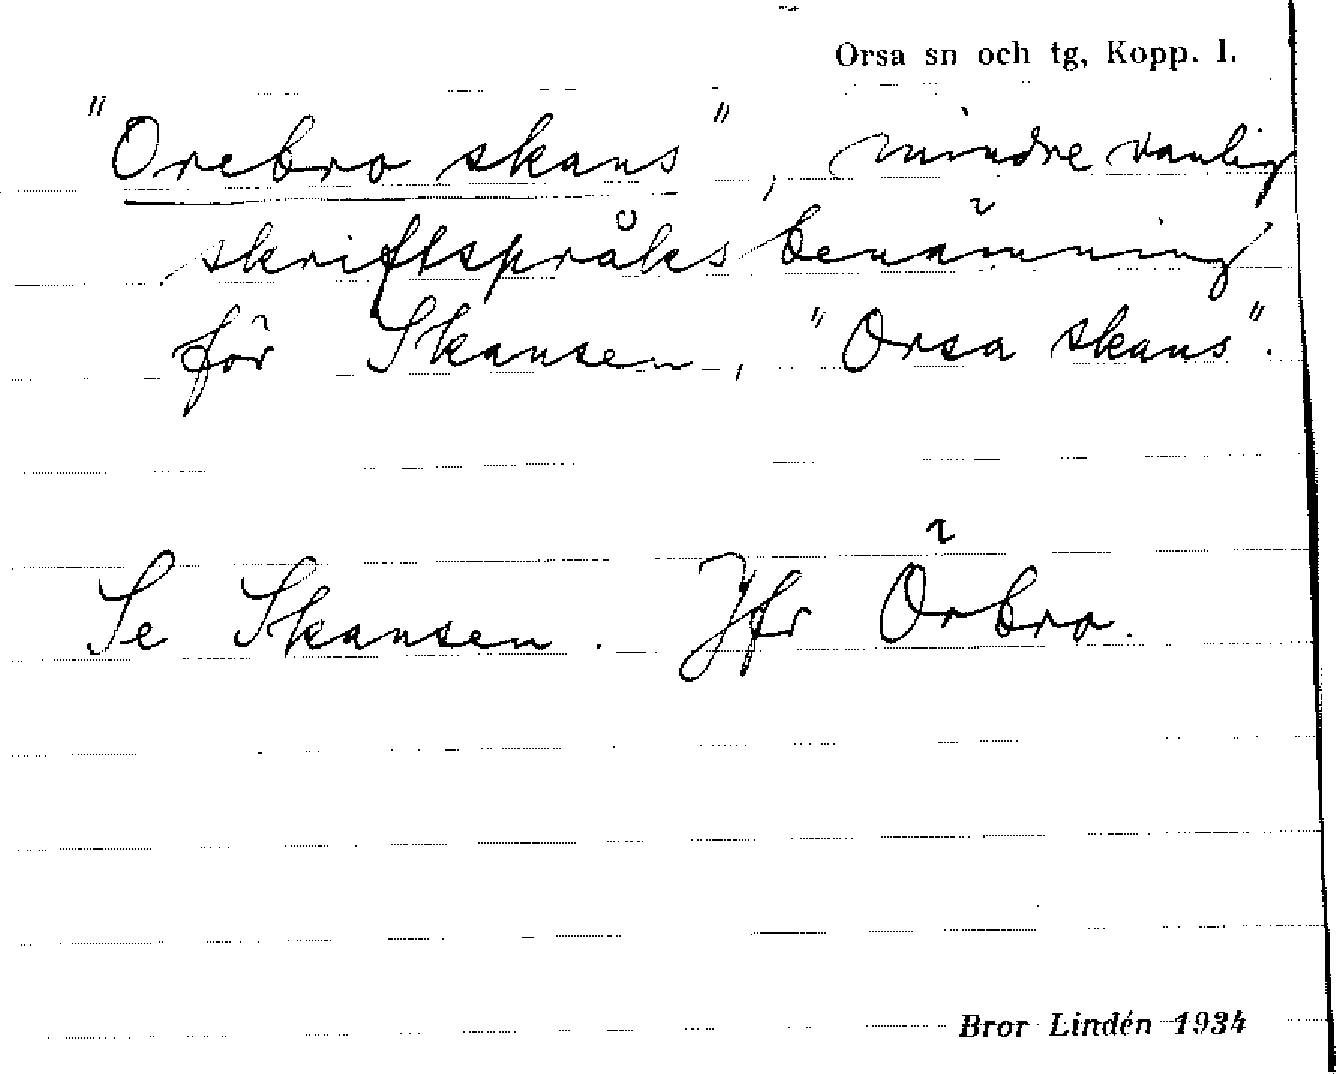 Orsa sn och tg, Kopp. l.
"Orebro skans", mindre vanlig
skriftspråksbenämning
för Skansen, "Orsa skans".
Se Skansen. Jfr Örbro.
Bror Lindén 1934